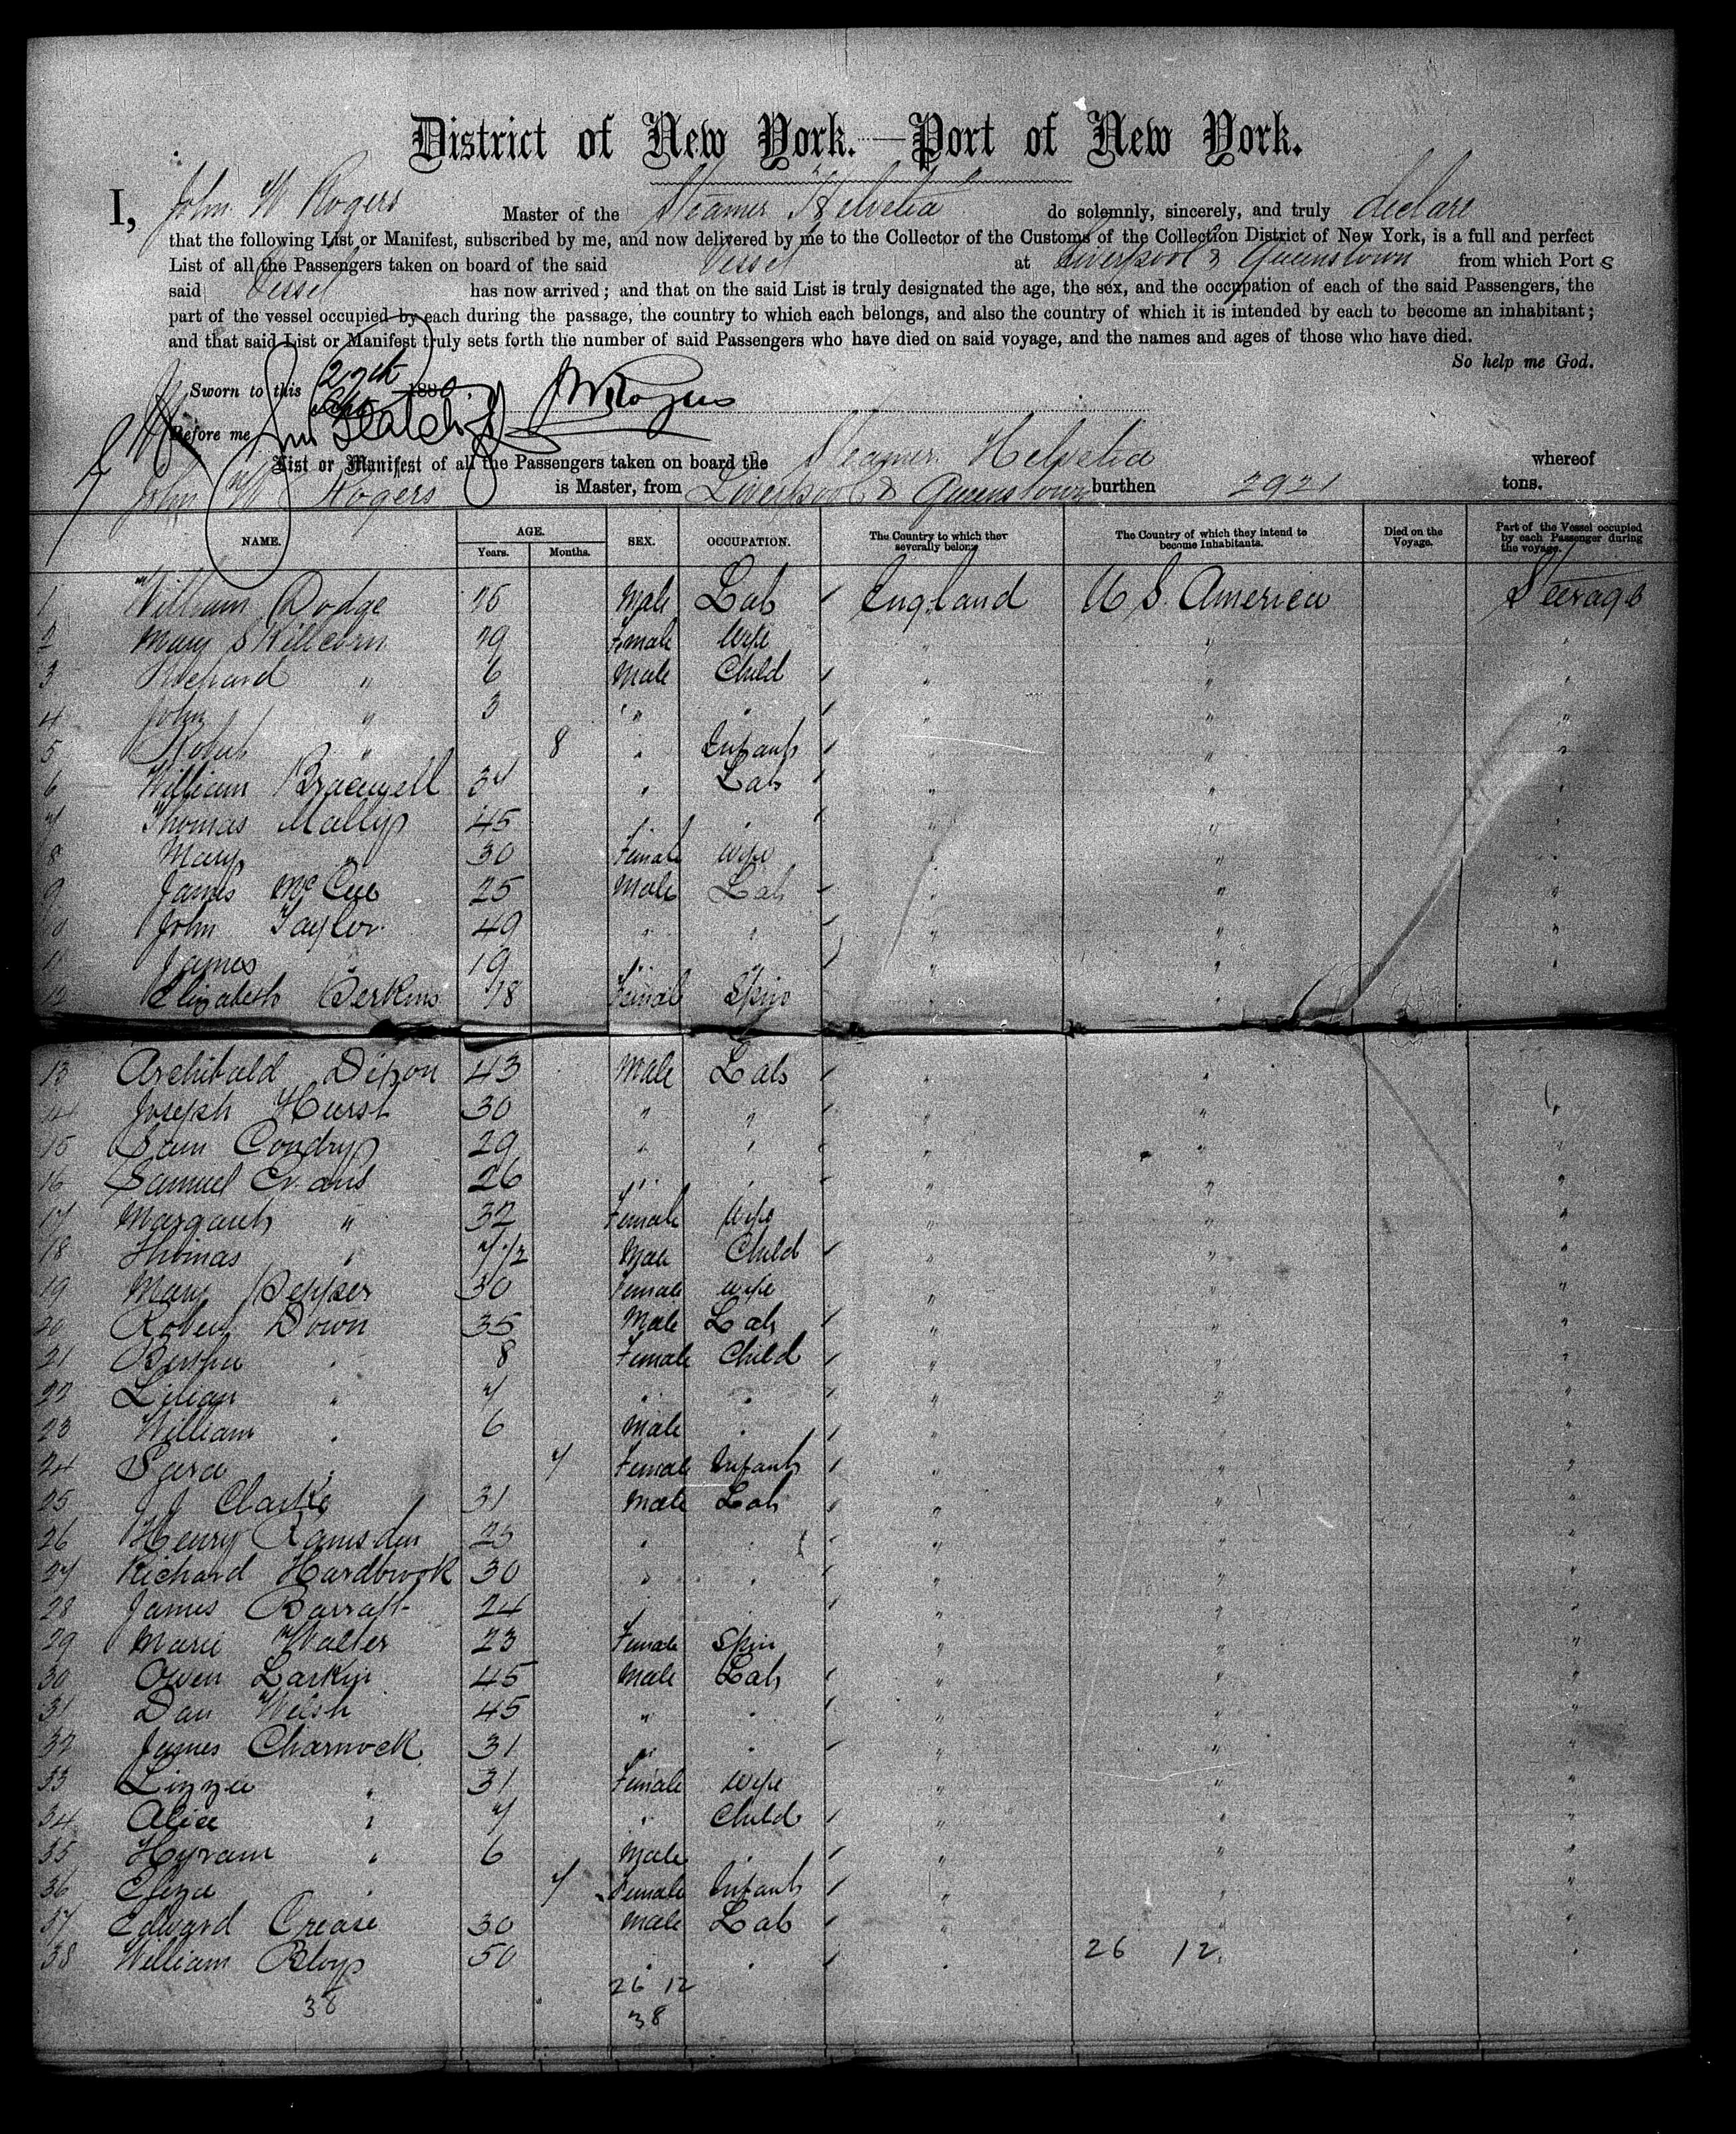 District of New York.—Port of New York.
I, John W Rogers Master of the Steamer Helvetia do solemnly, sincerely, and truly declare
that the following List or Manifest, subscribed by me, and now delivered by me to the Collector of the Customs of the Collection District of New York, is a full and perfect
List of all the Passengers taken on board of the said Vessel at Liverpool & Queenstown from which Port s
said Vessel has now arrived; and that on the said List is truly designated the age, the sex, and the occupation of each of the said Passengers, the
part of the vessel occupied by each during the passage, the country to which each belongs, and also the country of which it is intended by each to become an inhabitant;
and that said List or Manifest truly sets forth the number of said Passengers who have died on said voyage, and the names and ages of those who have died.
So help me God.
Sworn to this 27th 1880 JWRogers
Before me
List or Manifest of all the Passengers taken on board the Steamer Helvetia whereof
John W Rogers is Master, from Liverpool & Queenstown burthen 2921 tons.
NAME. AGE. Years. Months. SEX. OCCUPATION. The Country to which they severally belong The Country of which they intend to become Inhabitants. Died on the Voyage. Part of the Vessel occupied by each Passenger during the voyage.
1 William Dodge Male Lab England U S. America Steerage
2 Mary 29 Female Wife " " "
3 Richard " 6 Male Child " " "
4 John " 3 " " " " "
5 Robert " 8 " Infant " " "
6 William Bracewell 34 " Lab " " "
7 Thomas Mally 45 " " " " "
8 Mary " 30 Female wife " " "
9 James McCue 25 Male Lab " " "
10 John Taylor 49 " " " " "
11 James " 19 " " " " "
12 Elizabeth Perkins 18 Female Spins " " "
13 Archibald Dixon 43 Male Lab " " "
14 Joseph Hurst 30 " " " " "
15 Sam Condry 29 " " " " "
16 Samuel Evans 26 " " " " "
17 Margaret " 32 Female Wife " " "
18 Thomas " 7 1/2 Male Child " " "
19 Mary Pepper 30 Female wife " " "
20 Robert Down 35 Male Lab " " "
21 Bertha " 8 Female Child " " "
22 Lilian " 7 " " " " "
23 William " 6 Male " " " "
24 Sara " 7 Female Infant " " "
25 J Clarke 31 Male Lab " " "
26 Henry Ramsden 23 " " " " "
27 Richard Hardbrook 30 " " " " "
28 James Barratt 24 " " " " "
29 Marie Walter 23 Female Spin " " "
30 Owen Larkin 45 Male Lab " " "
31 Dan Welsh 45 " " " " "
32 James Charnock 31 " " " " "
33 Lizzie " 31 Female Wife " " "
34 Alice " 7 " Child " " "
35 Hyram " 6 Male " " " "
36 Eliza " 7 Female Infant " " "
37 Edward Crease 30 Male Lab " " "
38 William Bloy 50 " " " 26 12 "
38 26 12
38